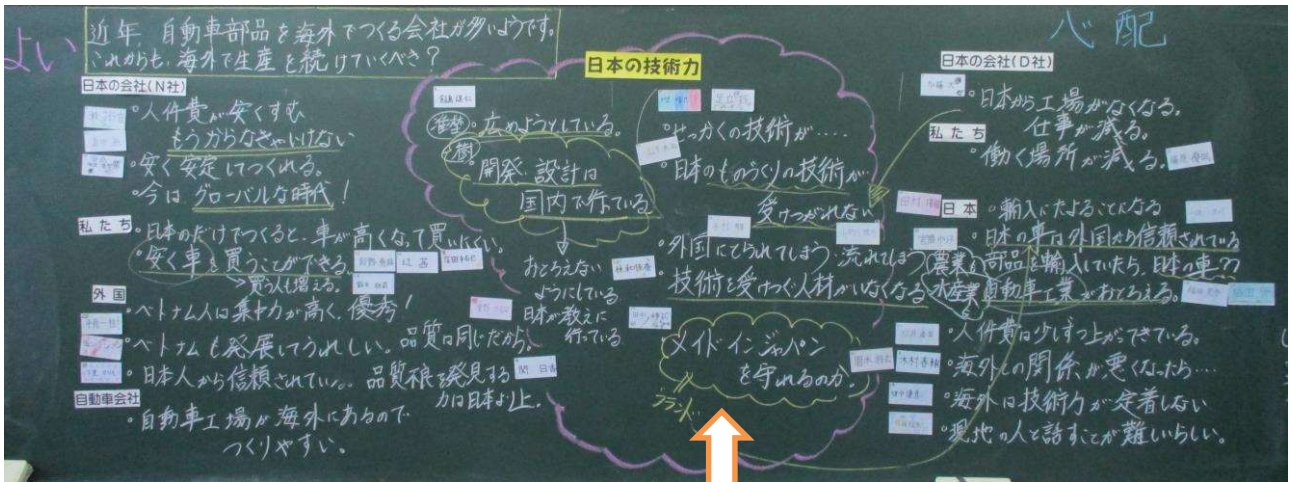 よい
近年、自動車部品を海外でつくる会社が多いようです。
これからも、海外で生産を続けていくべき？
日本の会社(N社)
・人件費が安くすむ
もうからなきゃいけない
・安く安定してつくれる。
・今はグローバルな時代！
私たち
・日本のだけでつくると、車が高くなって買いにくい。
安く車を買うことができる。
→買う人も増える。
外国
・ベトナム人は集中力が高く、優秀！
・ベトナムも発展してうれしい。品質は同じだから。
・日本人から信頼されている。品質不良を発見する
力は日本以上。
自動車会社
・自動車工場が海外にあるので
つくりやすい。
日本の技術力
・広めようとしている。
・開発・設計は
国内で行っている
↓
おとろえない
ようにしている
日本が教えに
行っている
・せっかくの技術が……
・日本のものづくりの技術が
受けつがれない
・外国にとられてしまう・流れてしまう
・技術を受けつぐ人材がいなくなる
メイドインジャパン
を守れるのか。
ブランド
心配
日本の会社(D社)
・日本から工場がなくなる。
仕事が減る。
私たち
・働く場所が減る。
日本
・輸入にたよることになる
・日本の車は外国から信頼されている
農業
部品を輸入していたら、日本の車??
水産業
自動車工業がおとろえる。
・人件費は少しずつ上がってきている。
・海外との関係が悪くなったら…
・海外は技術力が定着しない
・現地の人と話すことが難しいらしい。